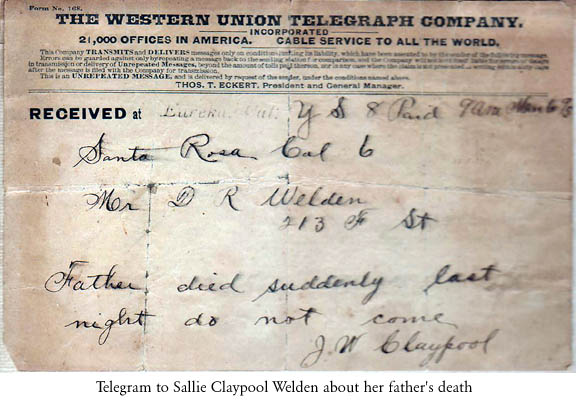 Form No. 168.
THE WESTERN UNION TELEGRAPH COMPANY.
INCORPORATED
21,000 OFFICES IN AMERICA. CABLE SERVICE TO ALL THE WORLD.
This Company TRANSMITS and DELIVERS messages only on conditions limiting its liability, which have been assented to by the sender of the following message.
Errors can be guarded against only by repeating a message back to the sending station for comparison, and the Company will not hold itself liable for errors or delays
in transmission or delivery of Unrepeated Messages, beyond the amount of tolls paid thereon, nor in any case where the claim is not presented in writing within sixty days
after the message is filed with the Company for transmission.
This is an UNREPEATED MESSAGE, and is delivered by request of the sender, under the conditions named above.
THOS. T. ECKERT, President and General Manager.
RECEIVED at Eureka, Cal. Y S 8 Paid 9am
Santa Rosa Cal 6
Mr D R Welden
213 F St
Father died suddenly last
night do not come
J. W Claypool
Telegram to Sallie Claypool Welden about her father's death